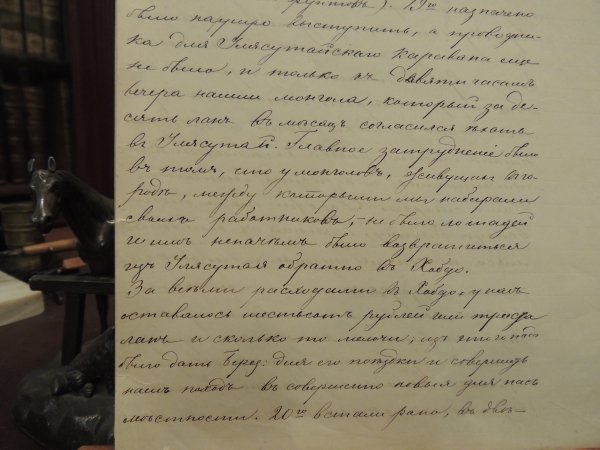 фунтовъ). 19го назначено
было наутро выступить, а проводни-
ка для Улясутайскаго каравана еще
не было, и только къ девяти часамъ
вечера нашли монгола, который за де-
сять ланъ въ мѣсяцъ согласился ѣхать
въ Улясутай. Главное затрудненіе было
въ томъ, что у монголовъ, живущихъ въ го-
родѣ, между которыми мы набирали
своихъ работниковъ, - не было лошадей
и имъ не на чѣмъ было возвратиться
изъ Улясутая обратно въ Хобдо.
За всѣми расходами въ Хобдо, у насъ
оставалось шестьсотъ рублей или триста
ланъ и сколько то мелочи; изъ этого надо
было дать Берез: для его поѣздки и совершить
нашъ походъ въ совершенно новыя для насъ
мѣстности. 20го встали рано, въ двѣ-